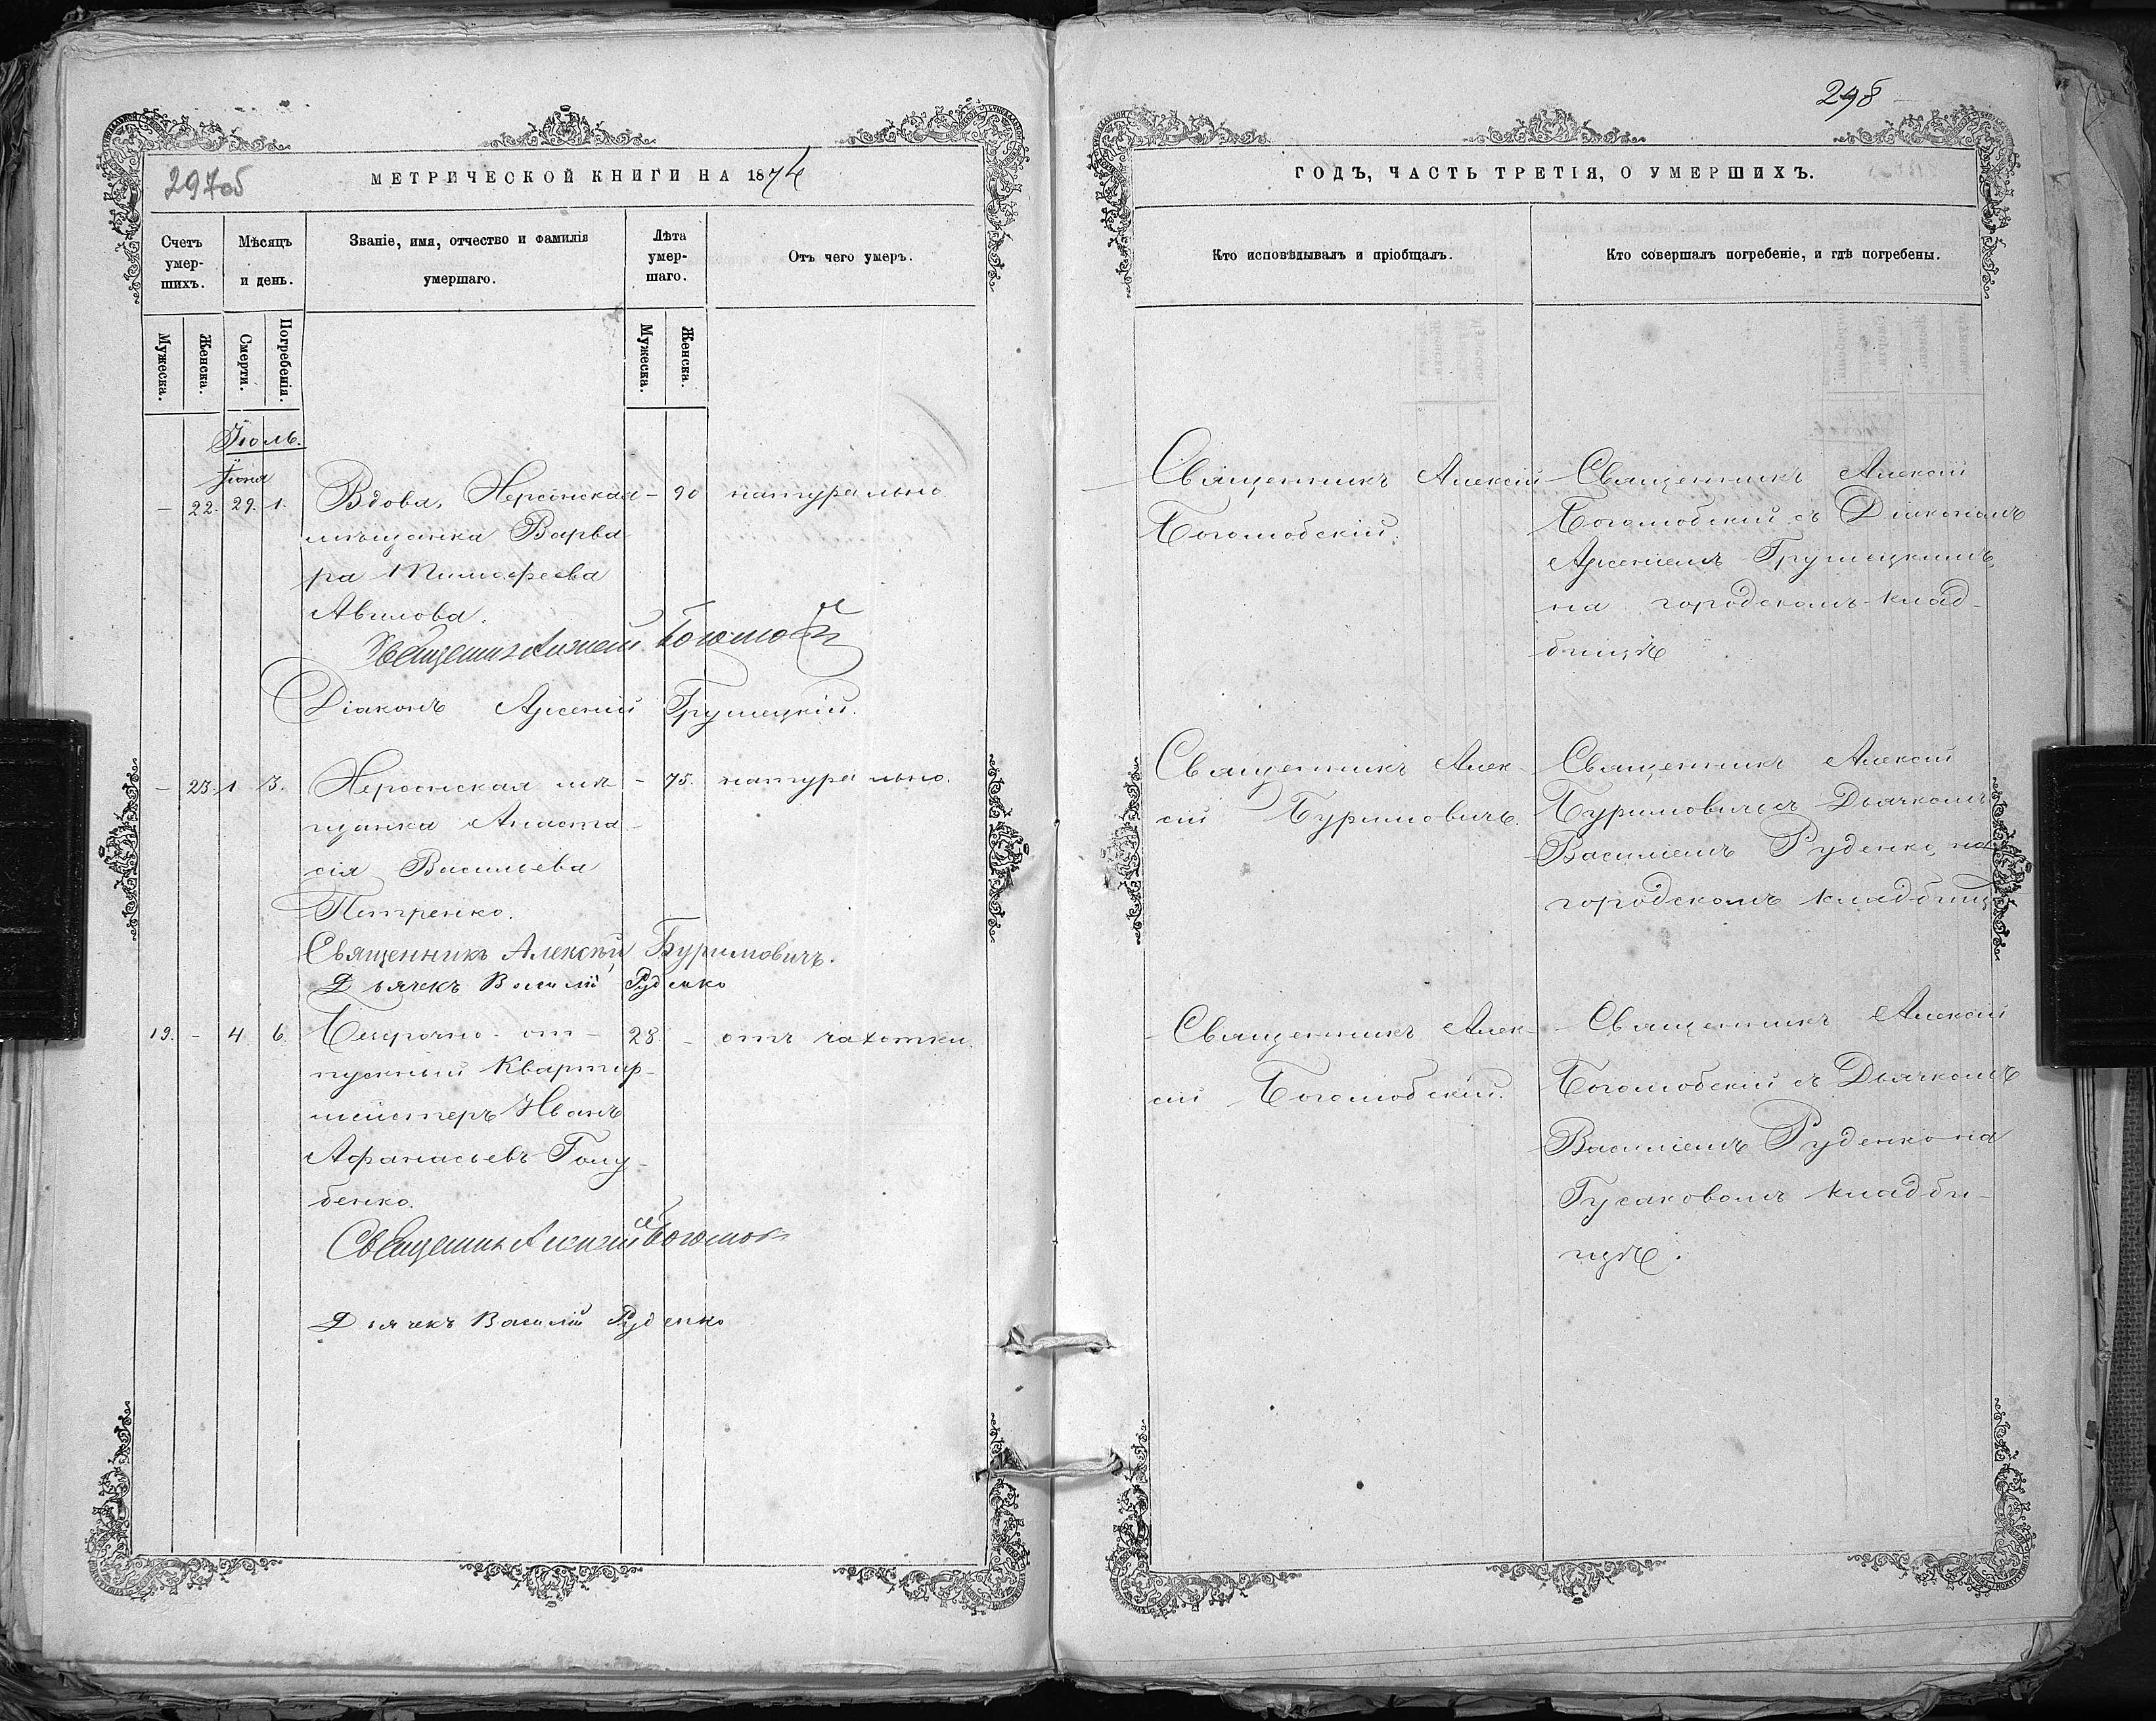 297об
МЕТРИЧЕСКОЙ КНИГИ НА 1874
Счетъ умер-шихъ.
Мѣсяцъ и день.
Званіе, имя, отчество и фамилія умершаго.
Лѣта умер-шаго.
Отъ чего умеръ.
Мужеска.
Женска.
Смерти.
Погребенія.
Мужеска.
Женска.
Іюль.
Іюня
— 22. 29. 1. Вдова, Херсонская — 90 натурально.
мѣщанка Варва-
ра Тимофеева
Авилова.
Священникъ Алексій
Діаконъ Арсеній Грушецкій.
— 23. 1 3. Херсонская мѣ- — 75. натурально.
щанка Анаста-
сія Васильева
Петренко.
Священникъ Алексѣй Буримовичъ.
Дьячекъ Василій Руденко
19. — 4 6 Безсрочно-от- 28. — отъ чахотки.
пускный Квартир-
мейстеръ Иванъ
Афанасьевъ Голу-
бенко.
Священникъ Алексій
Дьячекъ Василій Руденко
298
ГОДЪ, ЧАСТЬ ТРЕТІЯ, О УМЕРШИХЪ.
Кто исповѣдывалъ и пріобщалъ.
Кто совершалъ погребеніе, и гдѣ погребены.
Священникъ Алексій
Боголюбскій.
Священникъ Алексій
Боголюбскій съ Діакономъ
Арсеніемъ Грушецкимъ,
на городскомъ клад-
бищѣ
Священникъ Алек-
сій Буримовичъ.
Священникъ Алексій
Буримовичъ съ Дьячкомъ
Василіемъ Руденко, на
городскомъ кладбищѣ
Священникъ Алек-
сій Боголюбскій.
Священникъ Алексій
Боголюбскій съ Дьячкомъ
Василіемъ Руденко на
Гусаковомъ кладби-
щѣ.